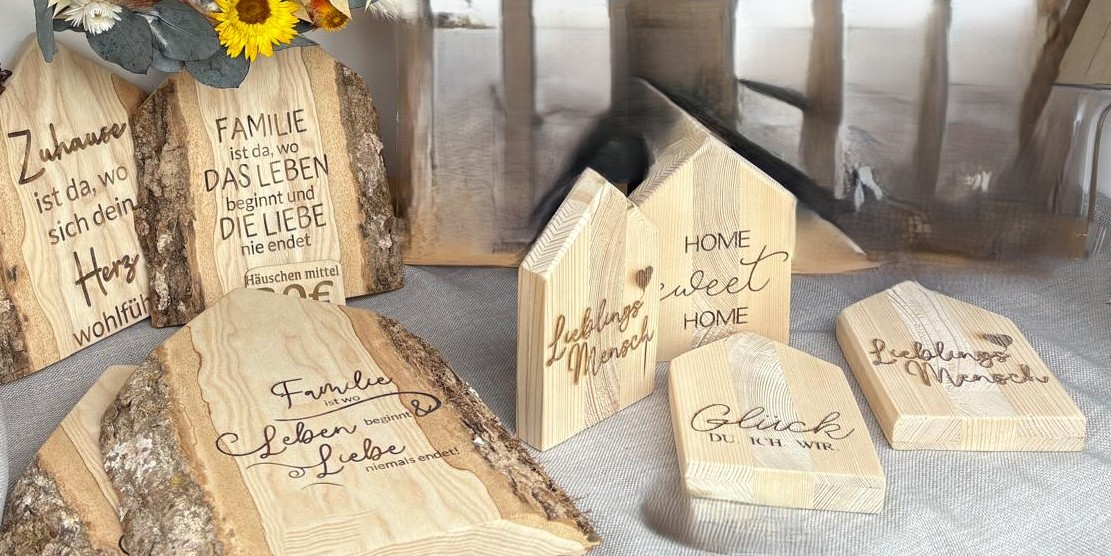 Zuhause
ist da, wo
sich dein
Herz
wohlfüh
FAMILIE
ist da, wo
DAS LEBEN
beginnt und
DIE LIEBE
nie endet
Häuschen mittel
Familie
ist wo
Leben beginnt &
Liebe
niemals endet!
Lieblings
Mensch
HOME
sweet
HOME
Glück
DU ICH WIR
Lieblings
Mensch